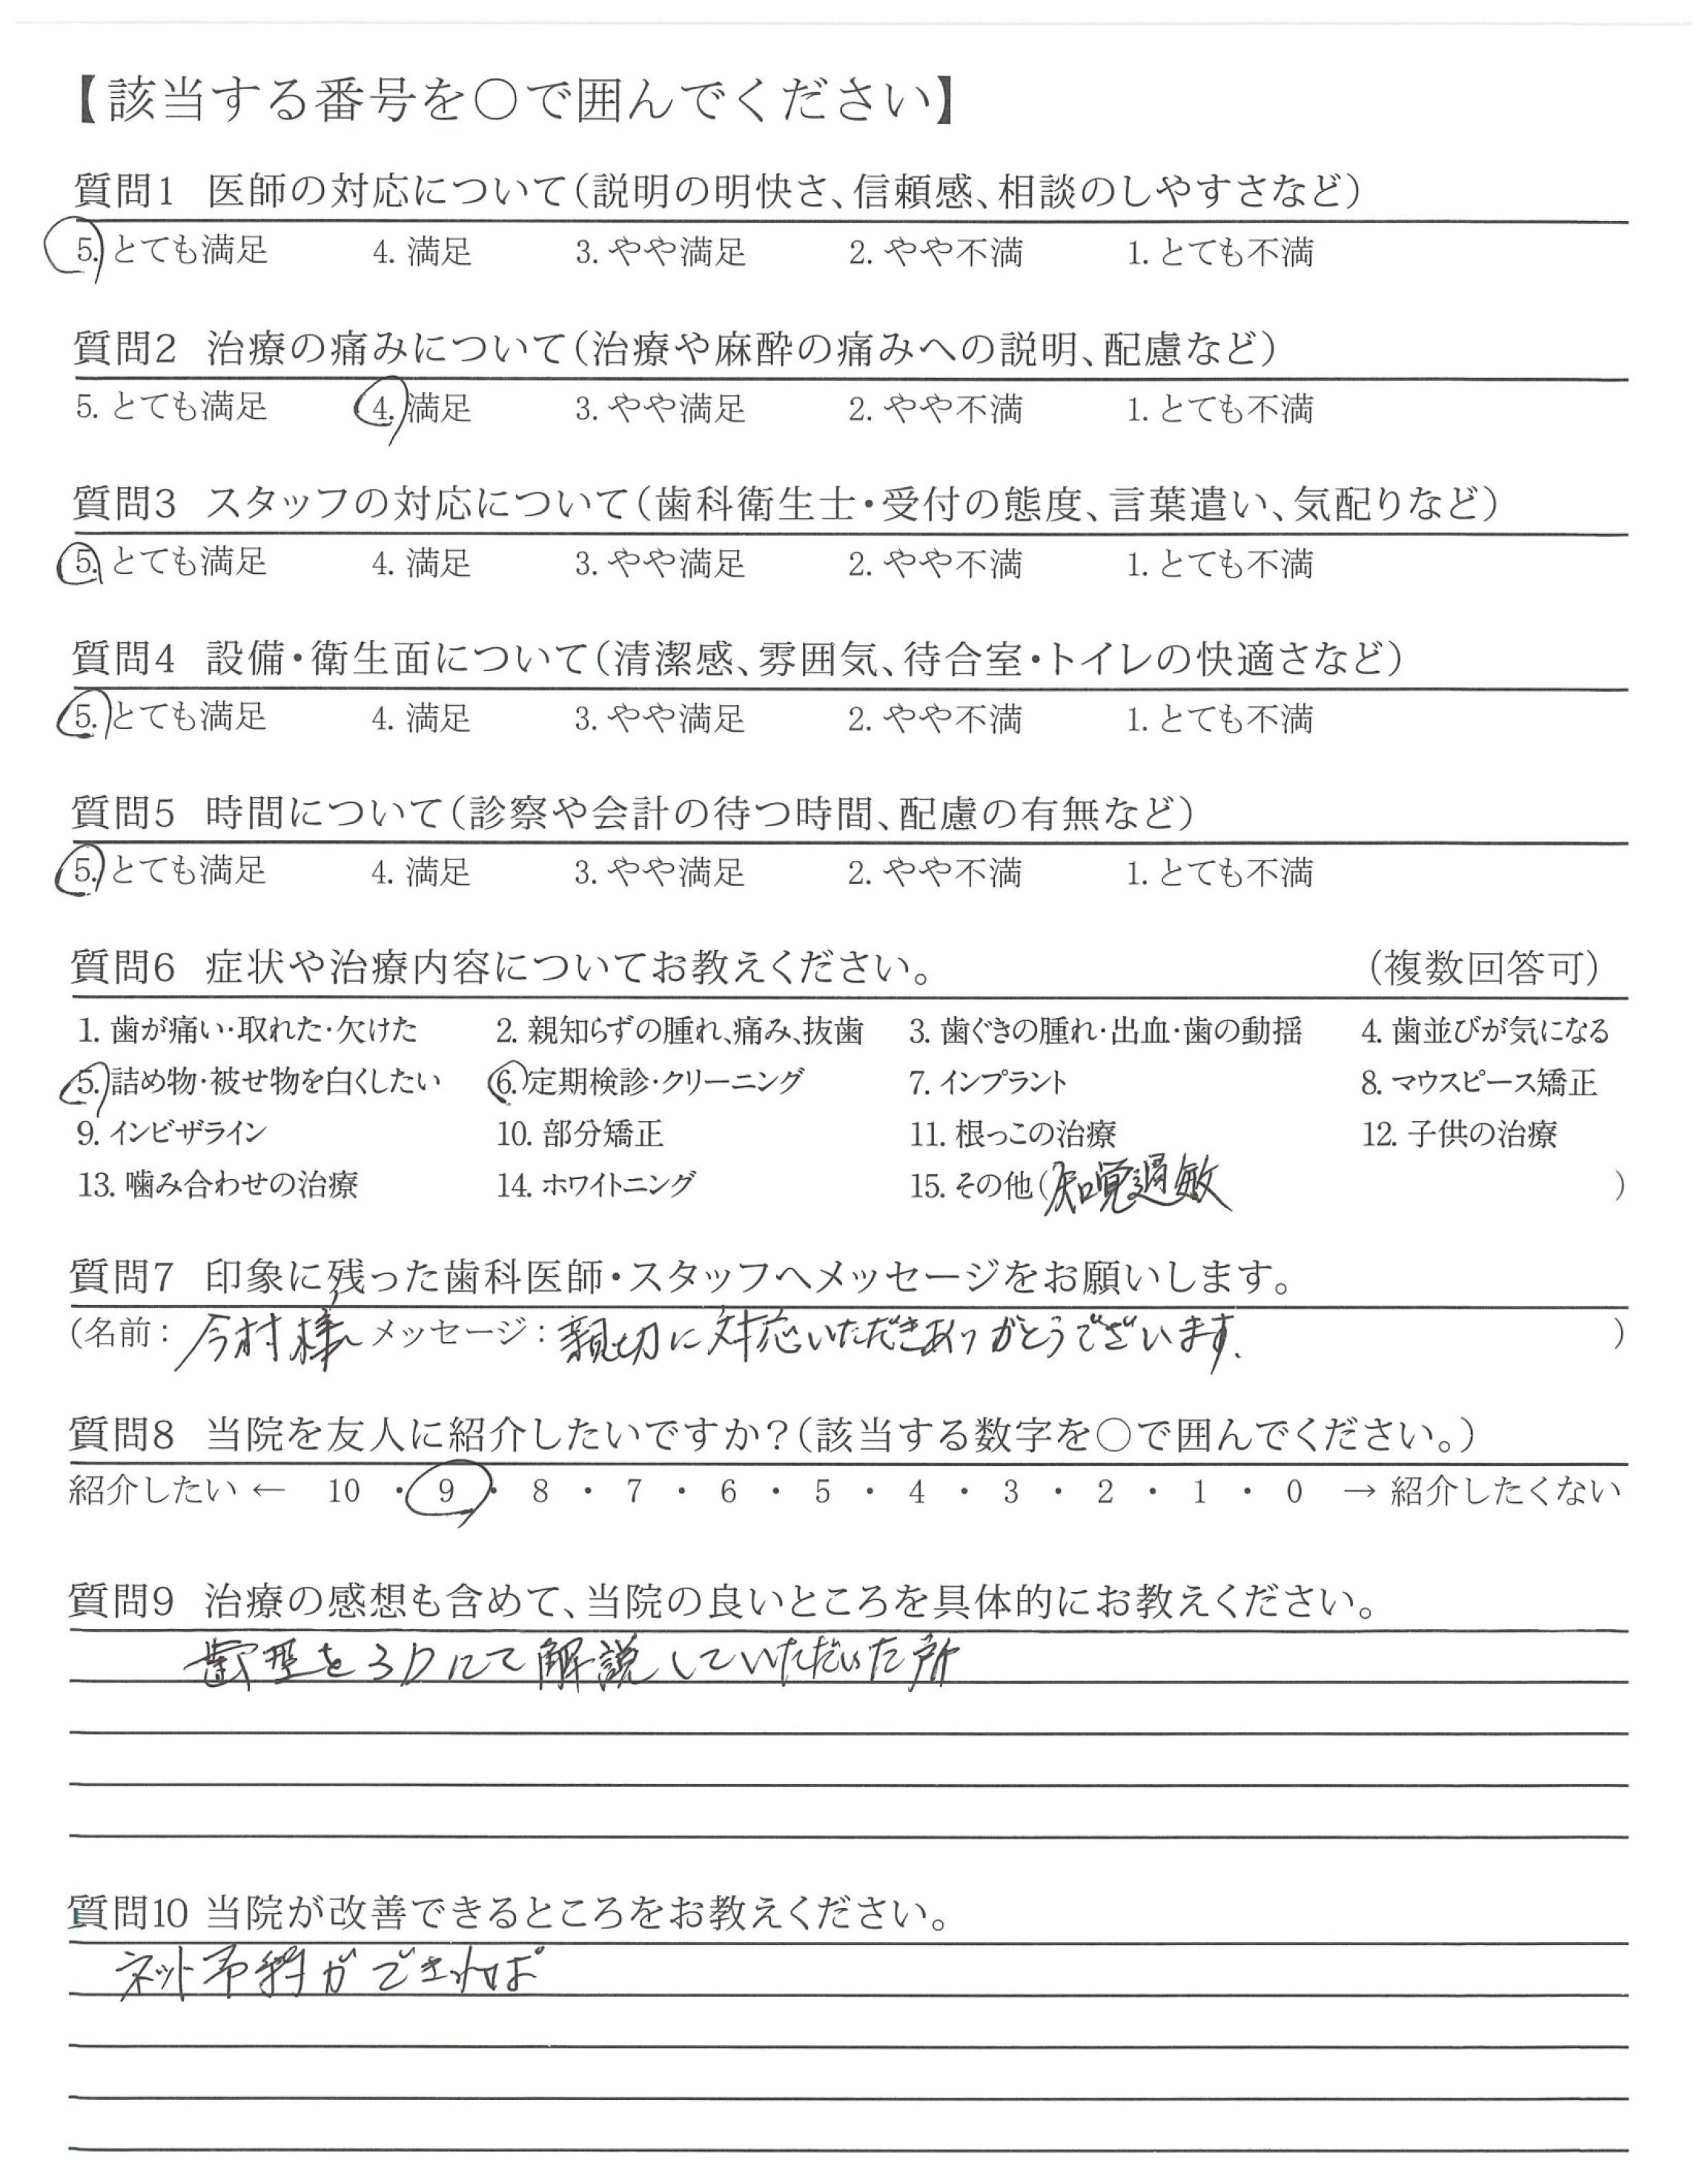 【該当する番号を○で囲んでください】
質問1 医師の対応について(説明の明快さ、信頼感、相談のしやすさなど)
5. とても満足 4. 満足 3. やや満足 2. やや不満 1. とても不満
質問2 治療の痛みについて(治療や麻酔の痛みへの説明、配慮など)
5. とても満足 4. 満足 3. やや満足 2. やや不満 1. とても不満
質問3 スタッフの対応について(歯科衛生士・受付の態度、言葉遣い、気配りなど)
5. とても満足 4. 満足 3. やや満足 2. やや不満 1. とても不満
質問4 設備・衛生面について(清潔感、雰囲気、待合室・トイレの快適さなど)
5. とても満足 4. 満足 3. やや満足 2. やや不満 1. とても不満
質問5 時間について(診察や会計の待つ時間、配慮の有無など)
5. とても満足 4. 満足 3. やや満足 2. やや不満 1. とても不満
質問6 症状や治療内容についてお教えください。 (複数回答可)
1. 歯が痛い・取れた・欠けた 2. 親知らずの腫れ、痛み、抜歯 3. 歯ぐきの腫れ・出血・歯の動揺 4. 歯並びが気になる
5. 詰め物・被せ物を白くしたい 6. 定期検診・クリーニング 7. インプラント 8. マウスピース矯正
9. インビザライン 10. 部分矯正 11. 根っこの治療 12. 子供の治療
13. 噛み合わせの治療 14. ホワイトニング 15. その他(知覚過敏 )
質問7 印象に残った歯科医師・スタッフへメッセージをお願いします。
(名前: 今村様 メッセージ: 親切に対応いただきありがとうございます. )
質問8 当院を友人に紹介したいですか?(該当する数字を○で囲んでください。)
紹介したい ← 10 ・ 9 ・ 8 ・ 7 ・ 6 ・ 5 ・ 4 ・ 3 ・ 2 ・ 1 ・ 0 → 紹介したくない
質問9 治療の感想も含めて、当院の良いところを具体的にお教えください。
歯型を3Dにて解説していただいた所
質問10 当院が改善できるところをお教えください。
ネット予約ができれば